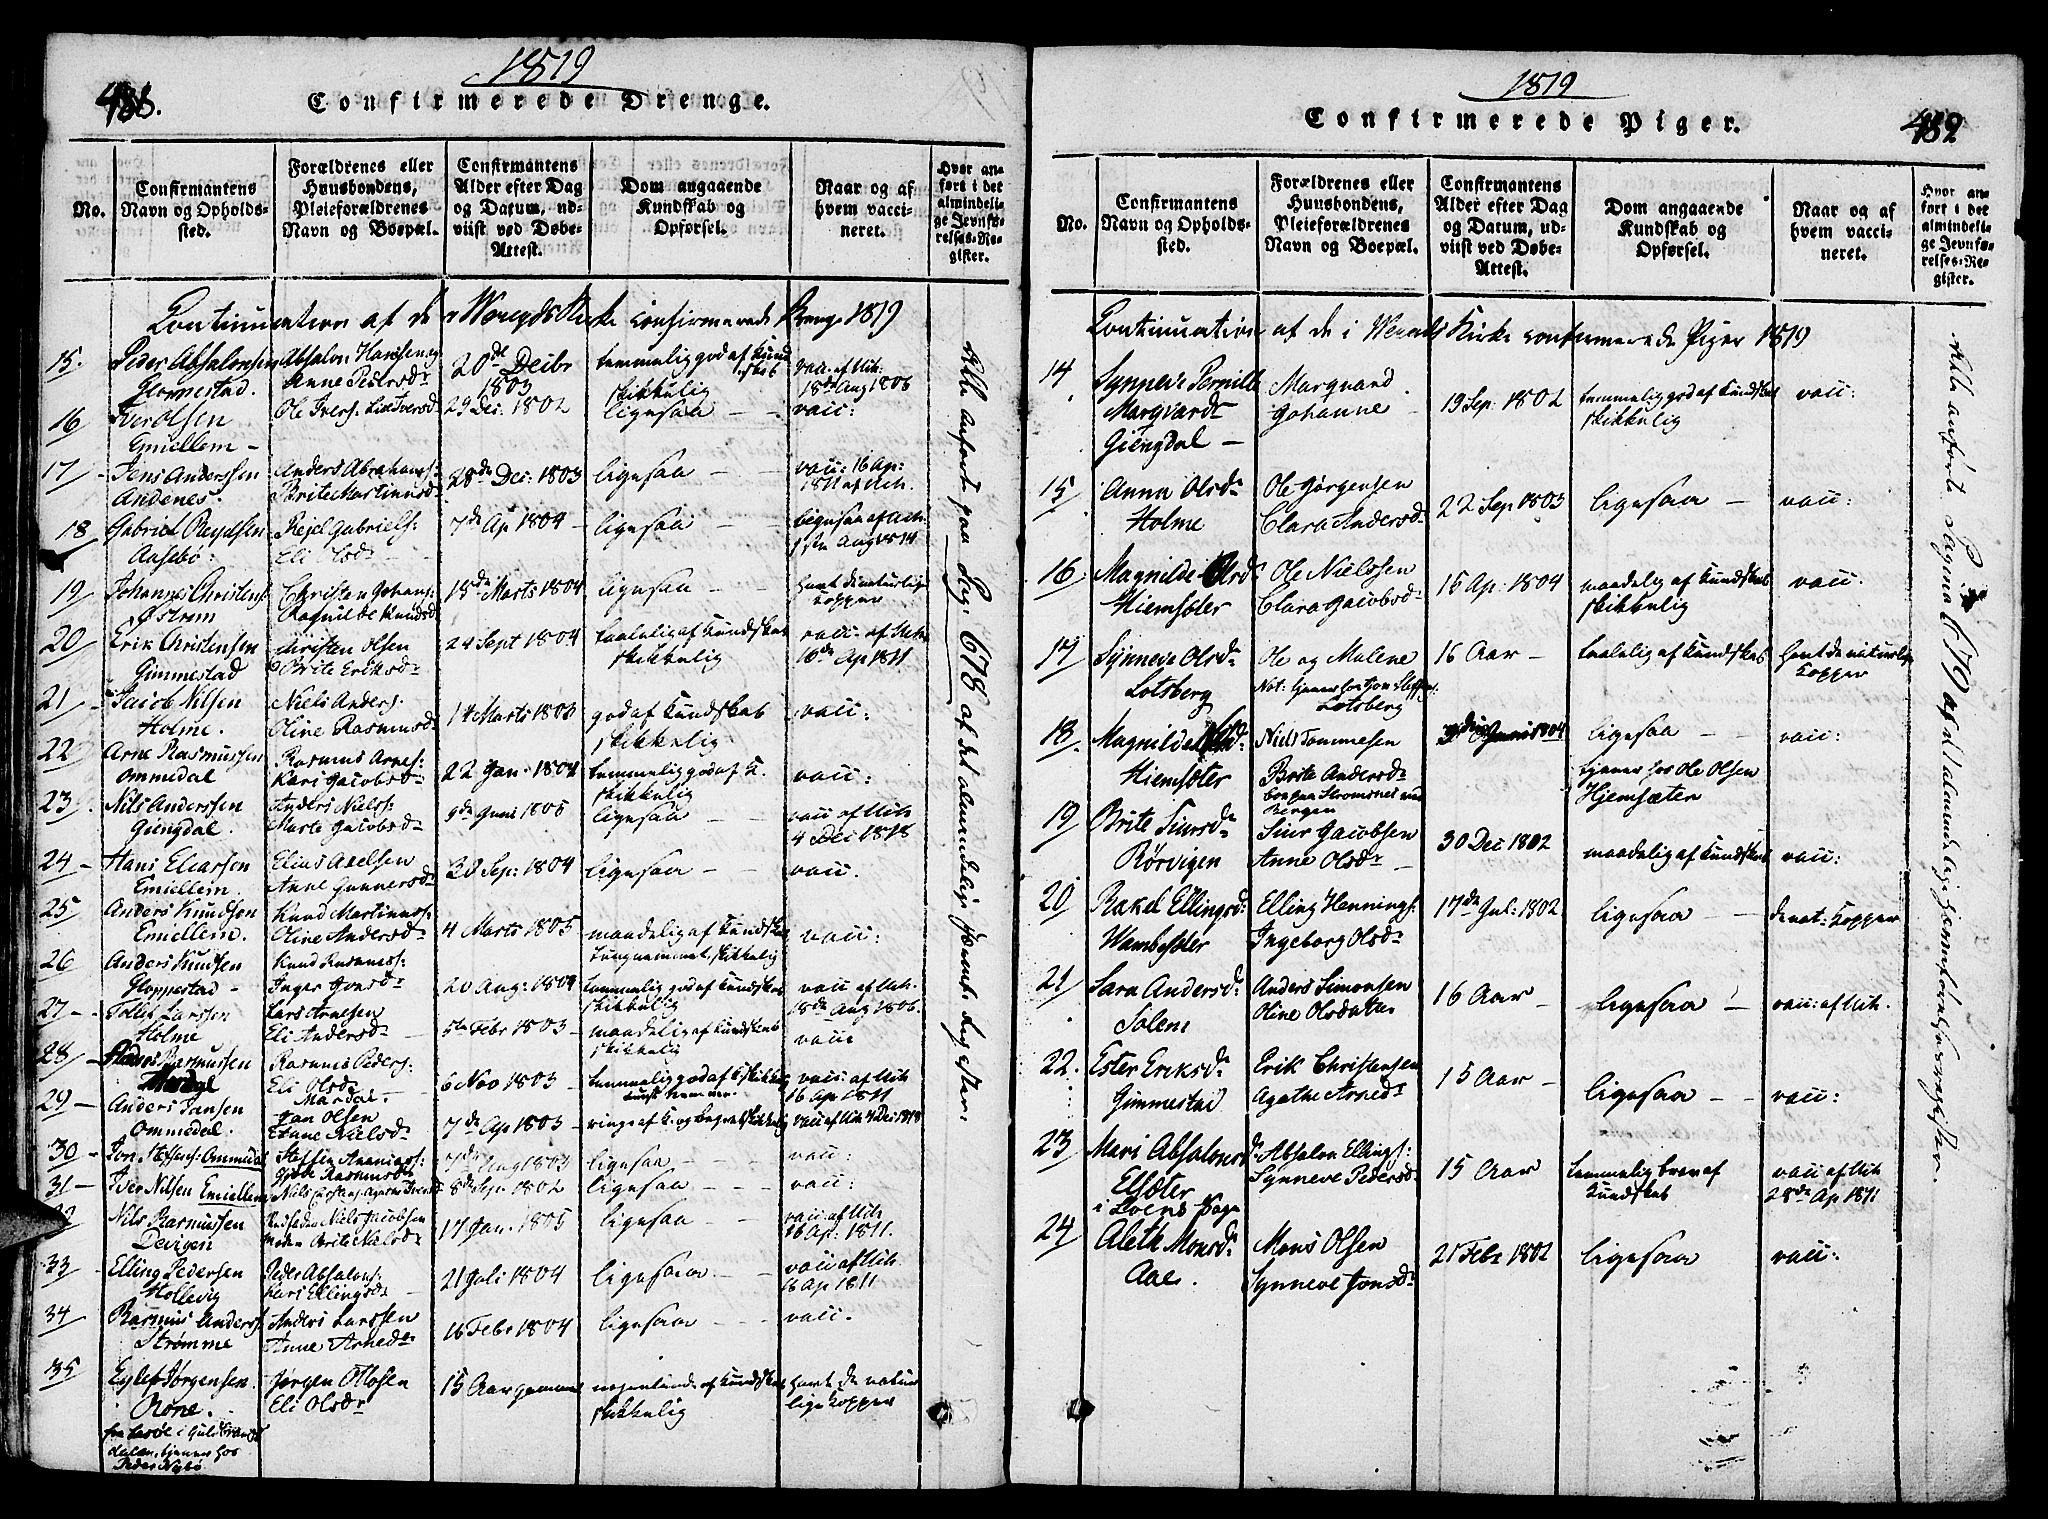 1819
488.
Confirmerede Drenge.
No.
Confirmantens Navn og Opholdssted.
Forældrenes eller Huusbondens, Pleieforældrenes Navn og Boepæl.
Confirmantens Alder efter Dag og Datum, udviist ved Døbe-Attest.
Dom angaaende Kundskab og Opførsel.
Naar og af hvem vaccineret.
Hvor anført i det almindelige Jevnførelses-Register.
Continuation af de Kirke confirmerede Drenge 1819
15. Peder Absalonsen Gloppestad. Absalon Hanssen og Anne Pedersdr 20de Decbr 1803 temmelig god af Kundskab skikkelig vacc. af Mich. 18de Aug 1806
16 Iver Olsen Emiellem – Ole Ivers: Lise Iversdr 29 Dec: 1802 ligesaa – – vacc:
17 – Jens Anderssen Andenes. Anders Abrahams: Brite Martinusdr 28de Dec: 1803 ligesaa – – vacc: 16 Ap: 1811 af Mich.
18 Gabriel Aasebø. Gabriels: Eli 7de Ap 1804 – ligesaa – – ligesaa af Mich. 1ste Aug 1814
19 Johannes Christens: Østrem Christen Johans: Ragnilde Knudsdr 18de Marts 1804 ligesaa – havt de naturlige Kopper
20 Erik Christensen Gimmestad Christen Olsen Brite Eriksdr 24 Sept 1804 taalelig af Kundskab skikkelig vacc. af Mich. 16de Ap 1811
21 Jacob Nilsen Holme. Niels Anders: Oline Rasmusdr 14 Marts 1803 god af Kundskab skikkelig vacc:
22 Arne Rasmussen Ommedal Rasmus Arnes: Kari Jacobsdr 22 Jan. 1804 temmelig god af K. skikkelig vacc:
23. Nils Anderssen Giengdal. Anders Niels: Marte Jacobsdr 9de Juni 1805 ligesaa – – vacc af Mich 4 Dec 1818
24 – Hans Eliassen Emiellem. Elias Axelsen Anne Gunnersdr 30 Sep: 1804 ligesaa – – vacc.
25 Anders Knudsen Emiellem. Knud Martinus: Oline Andersdr 4 Marts 1805 maadelig af Kundskab tungnemmet, skikkelig vacc:
26 Anders Knudsen Gloppestad – Knud Rasmus: Inger Jonsdr 20 Aug: 1804 temmelig god af Kundskab skikkelig vacc af Mich. 18de Aug 1806.
27 – Tollef Larssen Holme Lars Arnesen Eli Andersdr 5te Febr 1803 – maadelig af Kundskab skikkelig vacc
28 – Rasmussen Rasmus Peders: Eli Olsdr Mardal. 6 Nov 1803 – temmelig god af K. skikkelig vacc: af Mich 16 Ap 1811
29 – Anders Jansen Ommedal. Jan Olsen Anne Nielsdr 7de Ap 1803 – ringe af K. og skikkelig vacc af Mich 4 Dec 1818
30 – Jon Steffens: Ommedal Steffen Rasmusdr 7de Aug 1803 ligesaa – – vacc:
31 – Iver Nilsen Emiellem Nils 8de Sep. 1802 ligesaa – – vacc:
Nils Rasmussen Devigen Nils Jacobsen Moder Brite Nielsdr 17 Jan. 1805 ligesaa – – vacc af Mich 16 Ap: 1811.
33 Elling Pedersen Hollevig Peder Absalons: Kari Ellingsdr – 21 Juli 1804 ligesaa – – vacc af Mich. 16 Ap 1811.
34 Rasmus Anders: Strømme Anders Larssen Anne Arnedr 16 Febr 1804 ligesaa – – vacc.
35 Eylef Jørgensen. Røne. fra Lesøe i Guldbrandsdalen, tjener hos Peder Nybø Jørgen Ottosen Eli Olsdr 15 Aar gammel nogenlunde af Kundskab skikkelig havt de naturlige Kopper
Alle anført paa Pag: 678 af det almindelige Register.
1819
Confirmerede Piger.
489
No.
Confirmantens Navn og Opholdssted.
Forældrenes eller Huusbondens, Pleieforældrenes Navn og Boepæl.
Confirmantens Alder efter Dag og Datum, udviist ved Døbe-Attest.
Dom angaaende Kundskab og Opførsel.
Naar og af hvem vaccineret.
Hvor anført i det almindelige Jevnførelses-Register.
Continuation af de i Kirke confirmerede Piger 1819
14 Synneve Pernille Marqvardr Giengdal – Marquard Johanne – 19 Sep: 1802 temmelig god af Kundskab skikkelig vacc:
15 Anna Olsdr Holme Ole Jørgensen Clara Andersdr 22 Sep 1803 ligesaa – vacc:
16 Magnilde Olsdr Hiemsæter Ole Nielssen Clara Jacobsdr 15 Ap: 1804 maadelig af Kundskab skikkelig vacc.
17 Synneve Olsdr Lotsberg Ole og Malene Not: tjener hos Jon Steffens: Lotsberg 16 Aar – taalelig af Kundskab havt de naturlige Kopper
18 Magnilde Hiemsæter Niels Tommesen Brite Andersdr boe paa Stromsnes ved Bergen Juni 1804 ligesaa – – tjener hos Ole Olsen Hjemsæter vacc:
19 Brite Siursdr Rørvigen Siur Jacobsen Anne Olsdr – 30 Dec 1802 maadelig af Kundskab vacc:
20 Rakel Ellingsdr Hambesæter Elling Hennings: Ingeborg Olsdr 17de Jul: 1802 ligesaa – – de nat: Kopper
21 Sara Andersdr Solem Anders Simonsen Oline Olsdatter 16 Aar – ligesaa – vacc: af Mich.
22. Ester Eriksdr Gimmestad Erik Christensen Agathe Arnedr 15 Aar – ligesaa – – vacc:
23 Mari Absalonsdr Elsæter i Loens Sogn Absalon Ellings: Synneve Pedersdr 15 Aar temmelig brav af Kundskab vacc af Mich 28de Ap 1811
24 Aleth Monsdr Aae. Mons Olsen Synneve Jonsdr 21 Febr 1802 ligesaa vacc:
Alle anførte Pagina 679 af det almindelige Jevnførelsesregister.